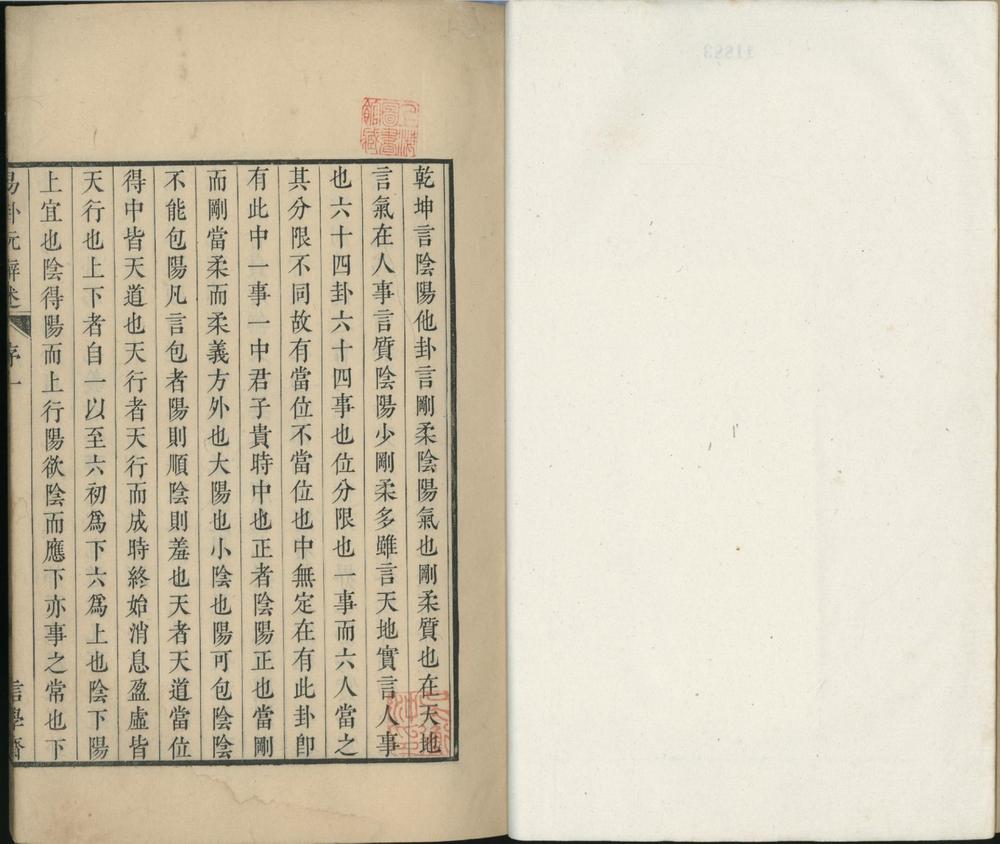 乾坤言陰陽他卦言剛柔陰陽氣也剛柔質也在天地
言氣在人事言質陰陽少剛柔多雖言天地實言人事
也六十四卦六十四事也位分限也一事而六人當之
其分限不同故有當位不當位也中無定在有此卦卽
有此中一事一中君子貴時中也正者陰陽正也當剛
而剛當柔而柔義方外也大陽也小陰也陽可包陰陰
不能包陽凡言包者陽則順陰則羞也天者天道當位
得中皆天道也天行者天行而成時終始消息盈虛皆
天行也上下者自一以至六初爲下六爲上也陰下陽
上宜也陰得陽而上行陽欲陰而應下亦事之常也下
易卦元辭述 序一 言學齋
上海圖書館藏
11883